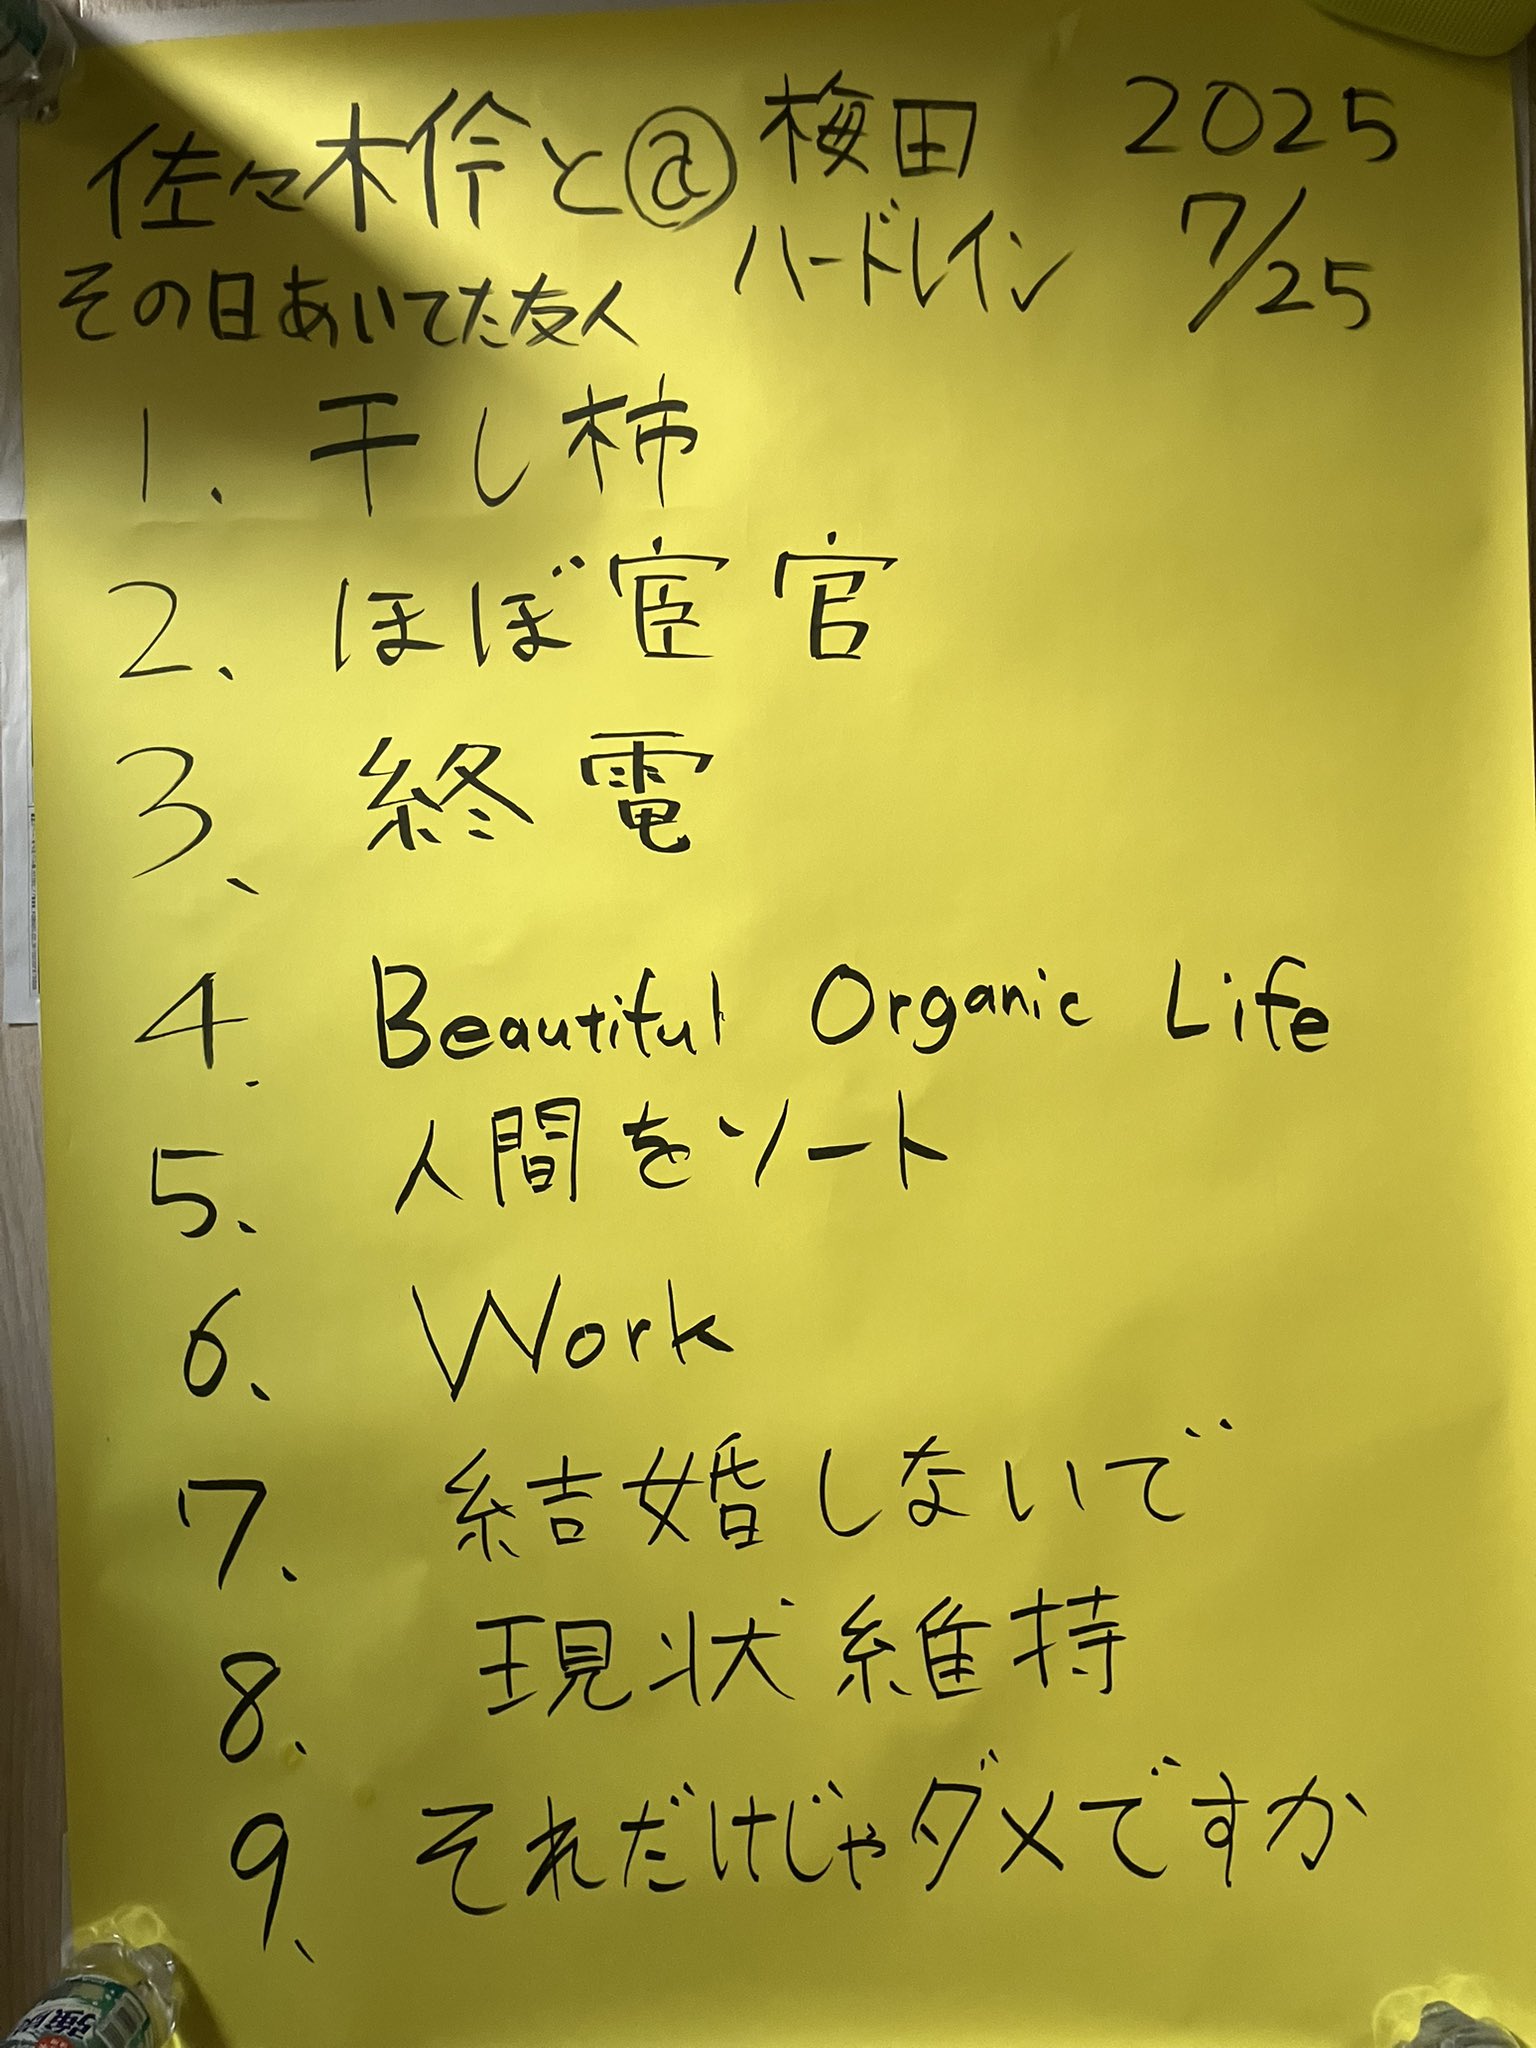 佐々木伶と@梅田 2025
その日あいてた友人 ハードレイン 7/25
1、干し柿
2、ほぼ宦官
3、終電
4. Beautiful Organic Life
5、人間をソート
6、Work
7、結婚しないで
8、現状維持
9、それだけじゃダメですか